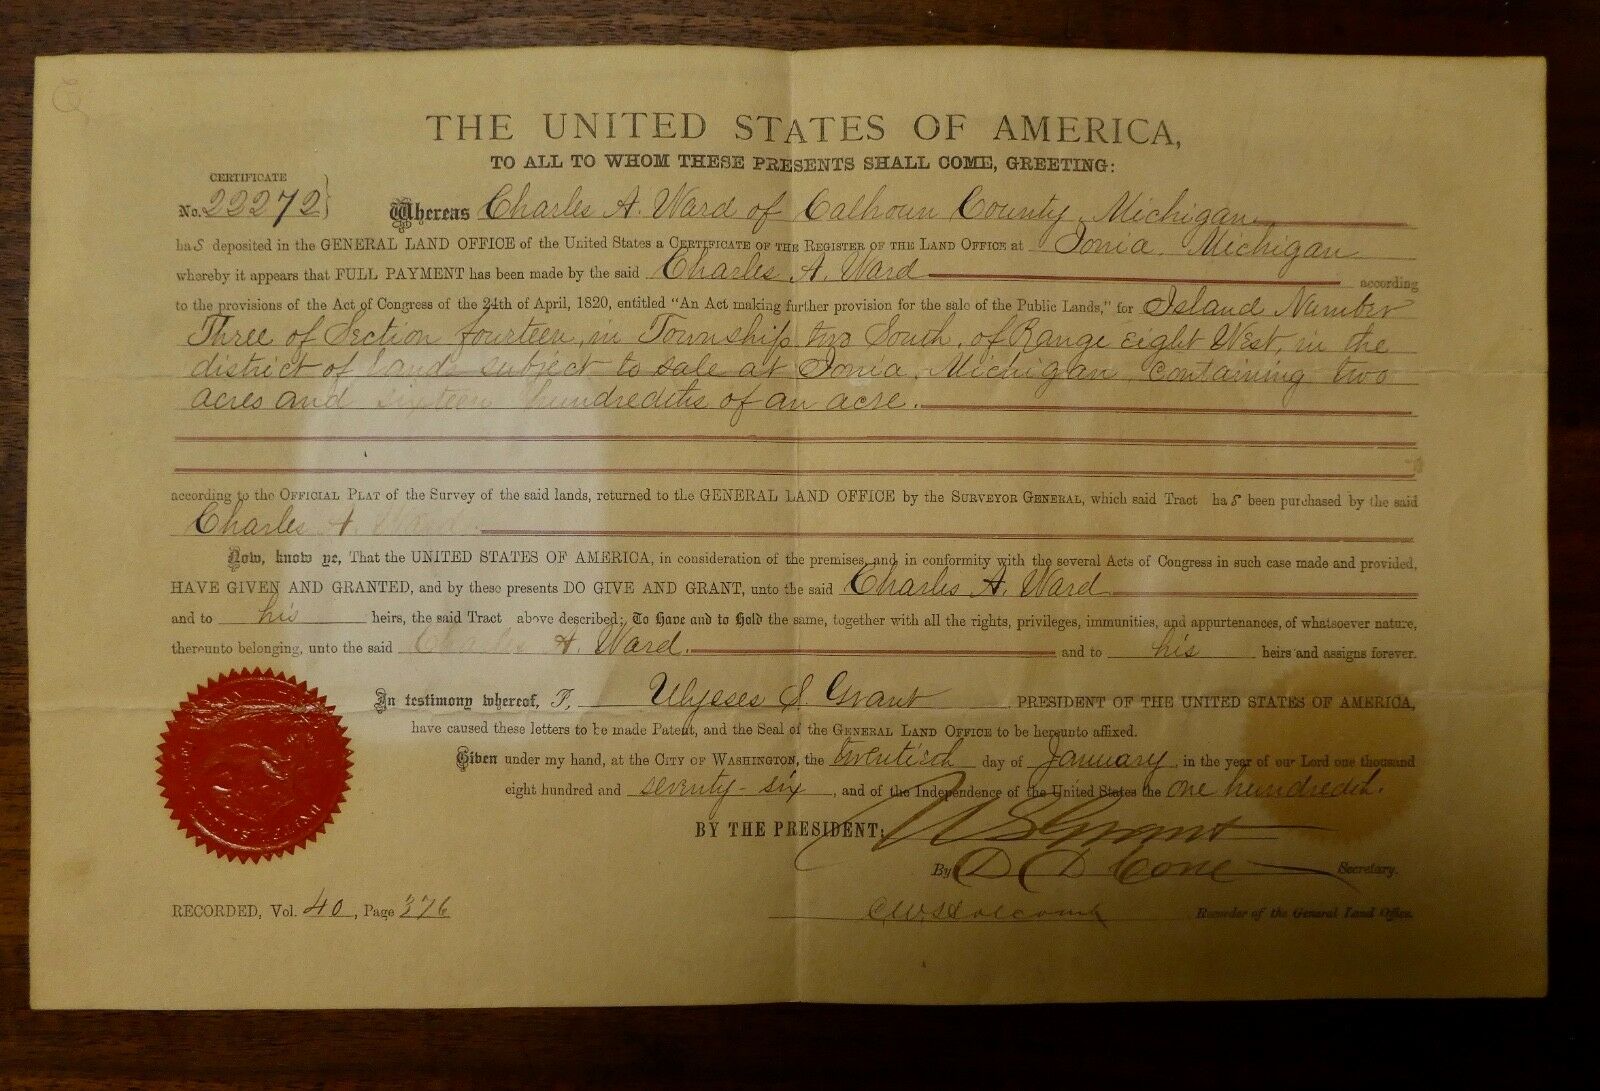 THE UNITED STATES OF AMERICA,
TO ALL TO WHOM THESE PRESENTS SHALL COME, GREETING:
CERTIFICATE
No. 22272}
Whereas Charles A. Ward of Calhoun County, Michigan
has deposited in the GENERAL LAND OFFICE of the United States a CERTIFICATE OF THE REGISTER OF THE LAND OFFICE at Ionia, Michigan
whereby it appears that FULL PAYMENT has been made by the said Charles A. Ward according
to the provisions of the Act of Congress of the 24th of April, 1820, entitled "An Act making further provision for the sale of the Public Lands," for Island Number
Three of Section fourteen, in Township two South, of Range eight West, in the
district of lands subject to sale at Ionia, Michigan, containing two
acres and sixteen hundredths of an acre.
according to the OFFICIAL PLAT of the Survey of the said lands, returned to the GENERAL LAND OFFICE by the SURVEYOR GENERAL, which said Tract has been purchased by the said
Charles A. Ward
Now, know ye, That the UNITED STATES OF AMERICA, in consideration of the premises, and in conformity with the several Acts of Congress in such case made and provided,
HAVE GIVEN AND GRANTED, and by these presents DO GIVE AND GRANT, unto the said Charles A. Ward
and to his heirs, the said Tract above described; To Have and to Hold the same, together with all the rights, privileges, immunities, and appurtenances, of whatsoever nature,
thereunto belonging, unto the said Charles A. Ward. and to his heirs and assigns forever.
In testimony whereof, I, Ulysses S Grant PRESIDENT OF THE UNITED STATES OF AMERICA,
have caused these letters to be made Patent, and the Seal of the GENERAL LAND OFFICE to be hereunto affixed.
Given under my hand, at the CITY OF WASHINGTON, the twentieth day of January, in the year of our Lord one thousand
eight hundred and seventy-six, and of the Independence of the United States the one hundredth.
BY THE PRESIDENT: U S Grant
By D D Cone Secretary.
RECORDED, Vol. 40, Page 376
Recorder of the General Land Office.